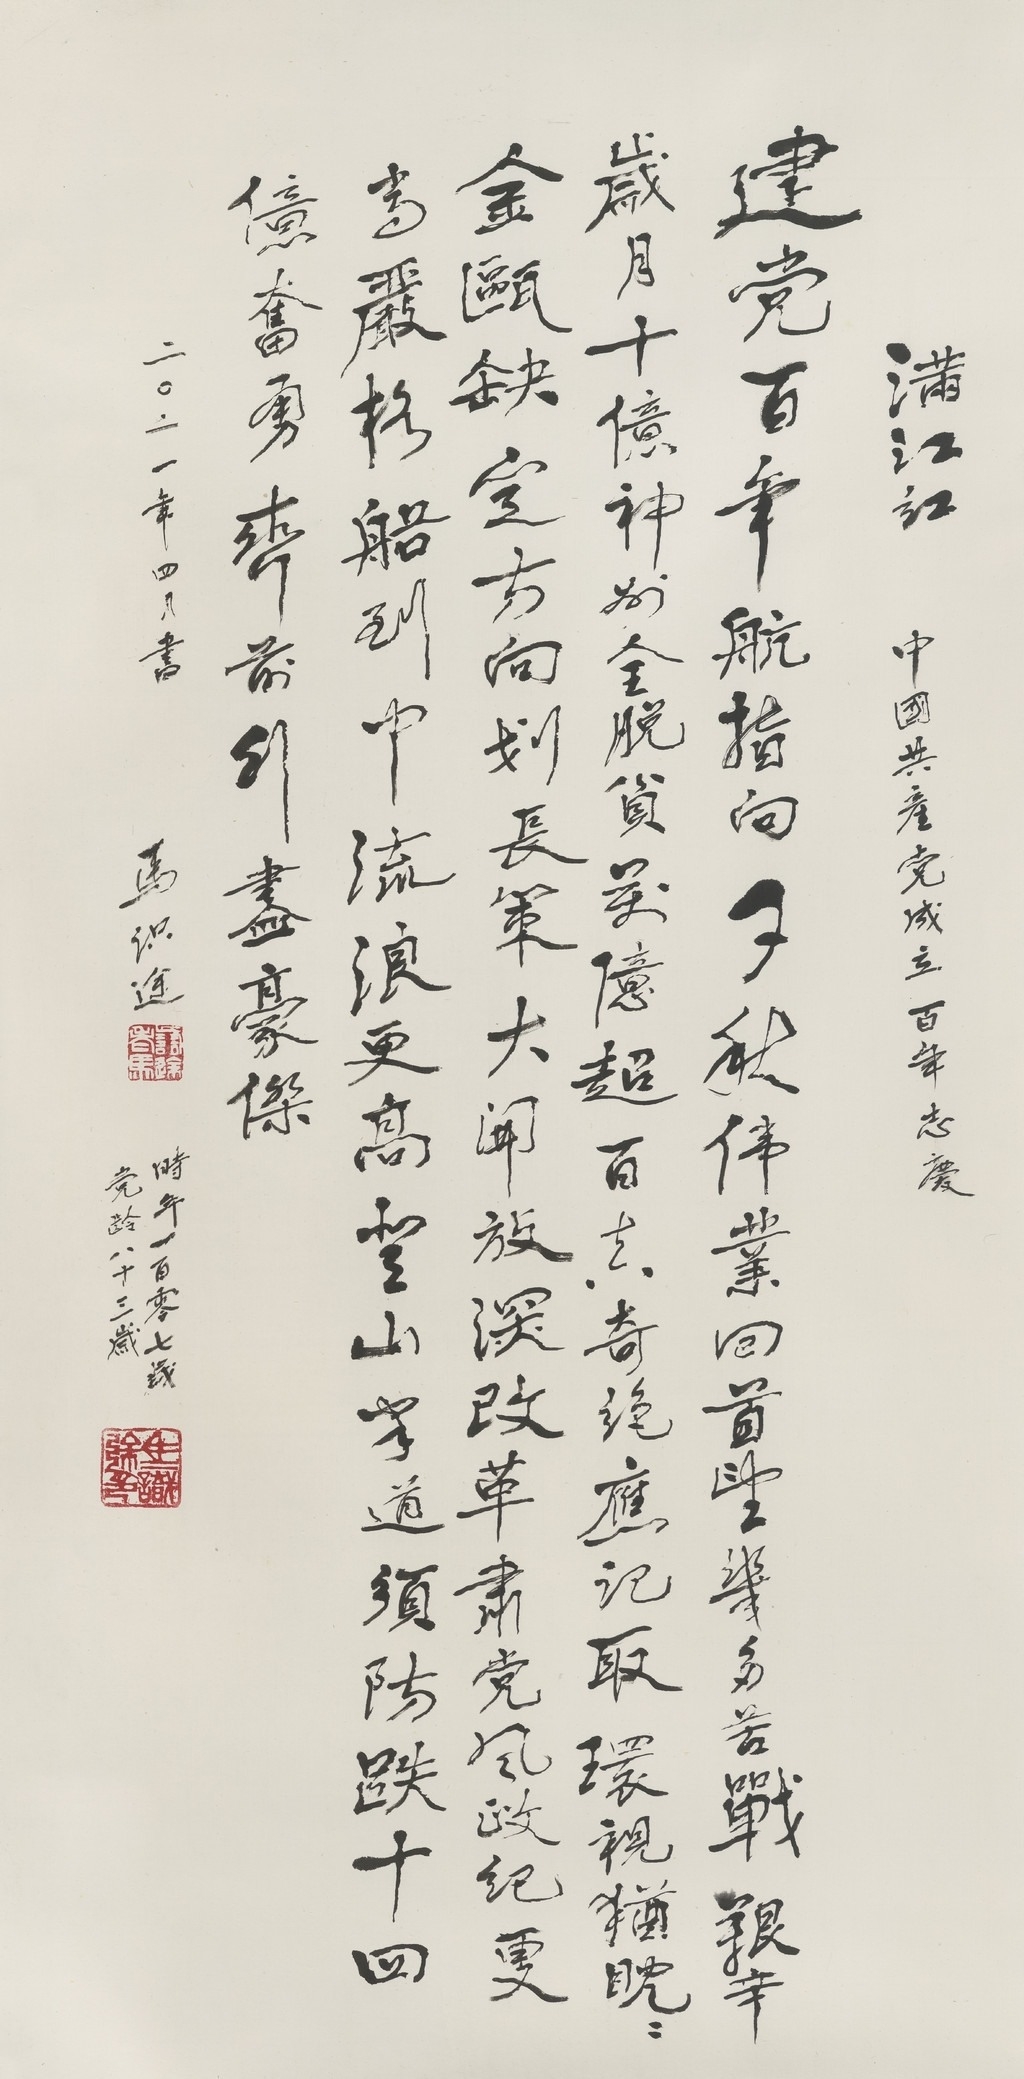 满江红 中國共產党成立百年志慶
建党百年航指向千秋伟業回首望幾多苦戰艱辛
歲月十億神州全脱貧萬億超百真奇绝應记取環視猶眈〻
金甌缺定方向划長策大開放深改革肅党風政纪更
当嚴格船到中流浪更高登山半道須防跌十四
億奮勇齊前引盡豪傑
二〇二一年四月書
馬识途
時年一百零七歲
党龄八十三歲